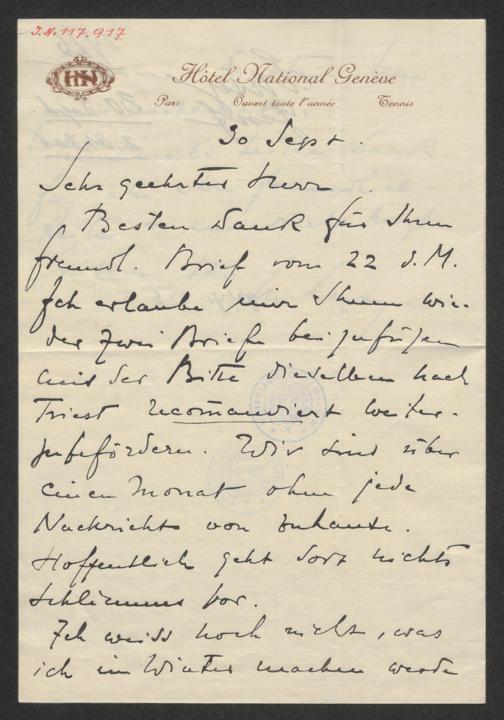 J.N. 117.917
HN
Hôtel National Genève
Parc Ouvert toute l'année Tennis
30 Sept.
Sehr geehrter Herr.
Besten Dank für Ihren
freundl. Brief vom 22 d. M.
Ich erlaube mir Ihnen wie-
der zwei Briefe beizufügen
mit der Bitte dieselben nach
Triest recom̄andiert weiter-
zubefördern. Wir sind über
einen Monat ohne jede
Nachricht von zuhause.
Hoffentlich geht dort nichts
schlimmes vor.
Ich weiss noch nicht, was
ich im Winter machen werde